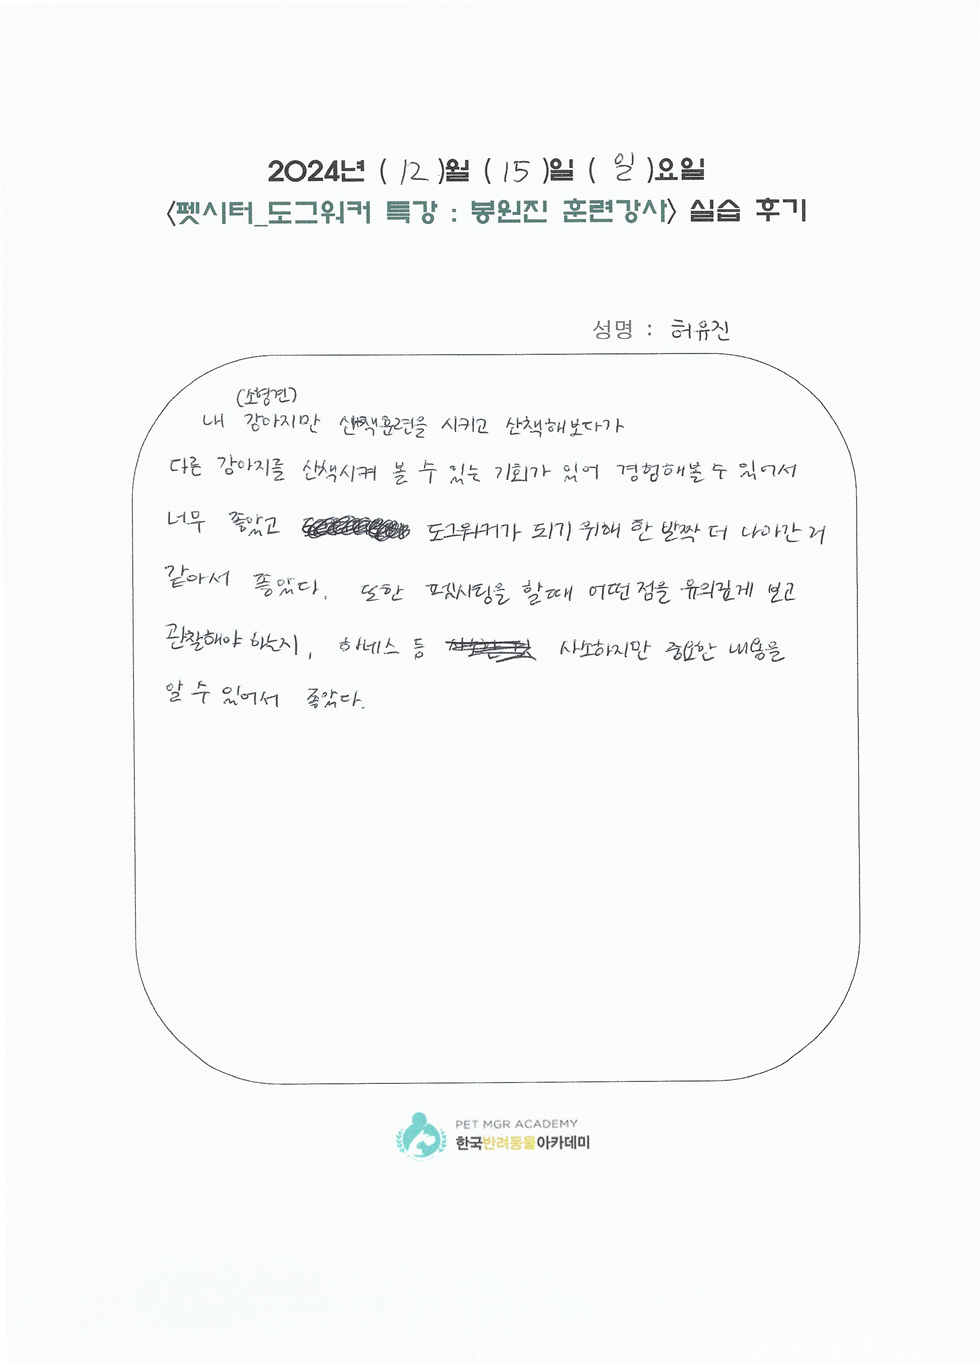 2024년 ( 12 )월 ( 15 )일 ( 일 )요일
<펫시터_도그워커 특강 : 봉원진 훈련강사> 실습 후기
성명 : 허유진
(소형견)
내 강아지만 산책훈련을 시키고 산책해보다가
다른 강아지를 산책시켜 볼 수 있는 기회가 있어 경험해볼 수 있어서
너무 좋았고 도그워커가 되기 위해 한 발짝 더 나아간 거
같아서 좋았다. 또한 펫시팅을 할때 어떤 점을 유의깊게 보고
관찰해야 하는지, 하네스 등 사소하지만 중요한 내용을
알 수 있어서 좋았다.
PET MGR ACADEMY
한국반려동물아카데미